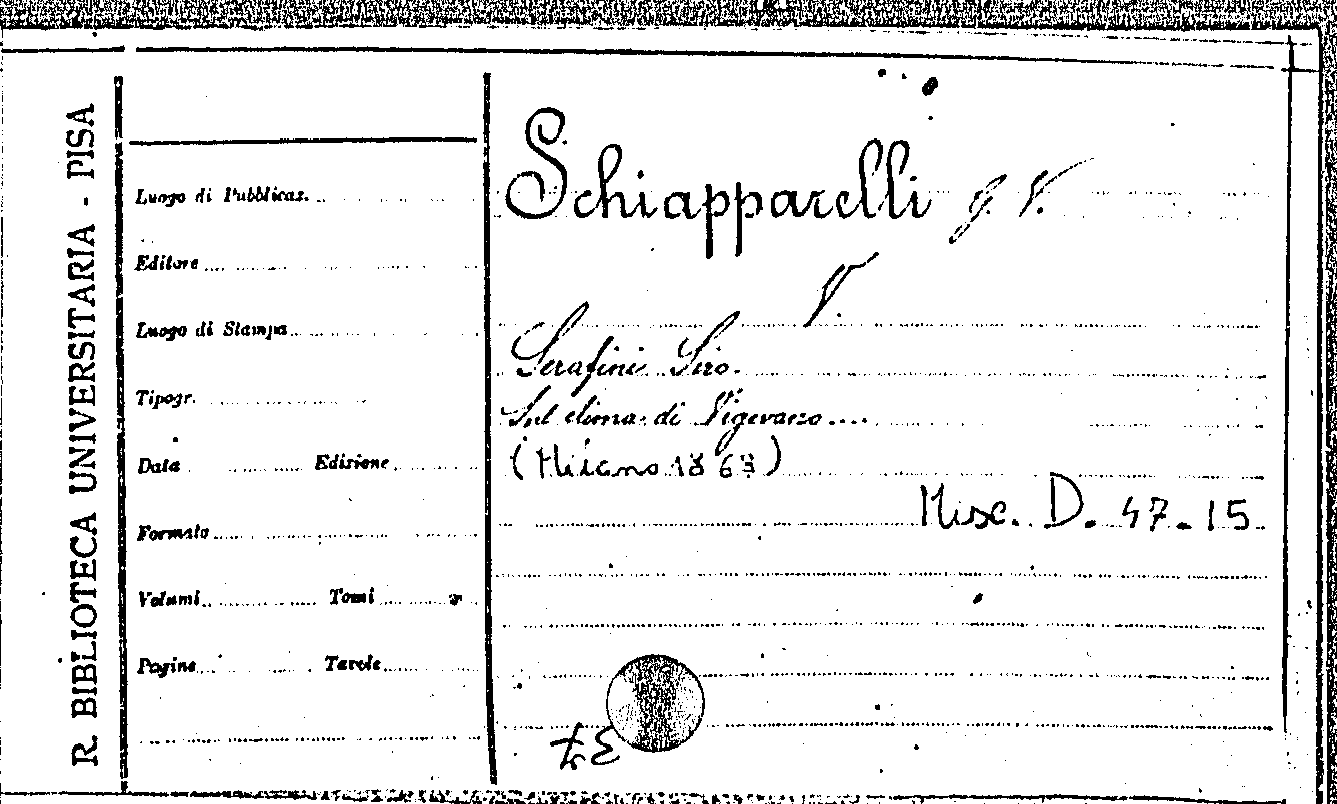 R. BIBLIOTECA UNIVERSITARIA - PISA
Luogo di Pubblicaz.
Editore
Luogo di Stampa
Tipogr.
Data Edizione
Formato
Volumi Tomi
Pagine Tavole
Schiapparelli G. V.
V.
Serafini Siro.
Sul clima di Vigevano....
(Milano 1863)
Misc. D. 47-15